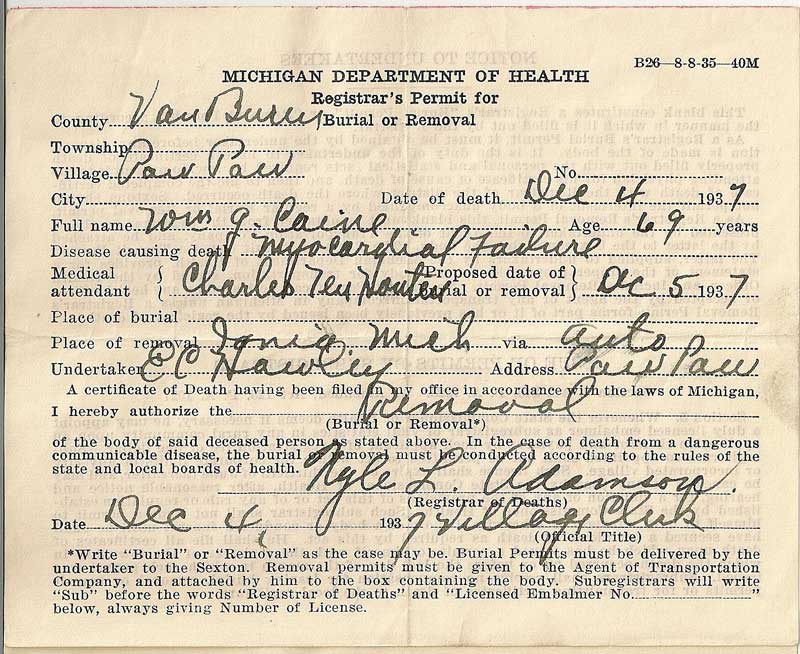 B26—8-8-35—40M
MICHIGAN DEPARTMENT OF HEALTH
Registrar's Permit for
County Van Buren Burial or Removal
Township
Village Paw Paw No.
City Date of death Dec 4 1937
Full name Wm G. Caine Age 69 years
Disease causing death Myocardial Failure
Medical attendant Charles Ten Houten Proposed date of Burial or removal Dec 5 1937
Place of burial
Place of removal Ionia Mich via auto
Undertaker E C Hawley Address Paw Paw
A certificate of Death having been filed in my office in accordance with the laws of Michigan,
I hereby authorize the Removal
(Burial or Removal*)
of the body of said deceased person as stated above. In the case of death from a dangerous
communicable disease, the burial or removal must be conducted according to the rules of the
state and local boards of health.
L. Adamson.
(Registrar of Deaths)
Date Dec 4, 1937 Village Clerk
(Official Title)
*Write "Burial" or "Removal" as the case may be. Burial Permits must be delivered by the
undertaker to the Sexton. Removal permits must be given to the Agent of Transportation
Company, and attached by him to the box containing the body. Subregistrars will write
"Sub" before the words "Registrar of Deaths" and "Licensed Embalmer No. "
below, always giving Number of License.